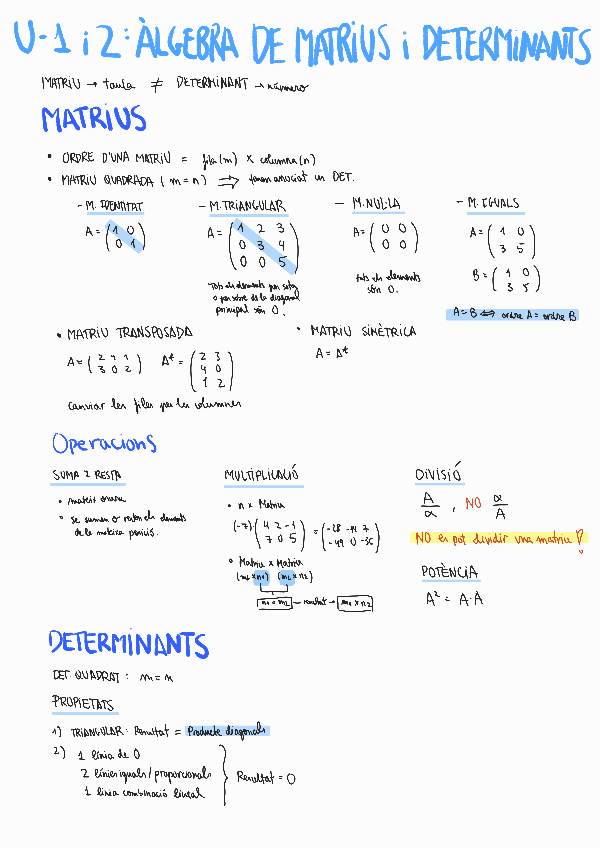 U-1 i 2: ÀLGEBRA DE MATRIUS i DETERMINANTS
MATRIU → taula ≠ DETERMINANT → número
MATRIUS
• ORDRE D'UNA MATRIU = fila (m) × columna (n)
• MATRIU QUADRADA (m = n) ⇒ tenen associat un DET.
- M. IDENTITAT
A = (1 0
0 1)
- M. TRIANGULAR
A = (1 2 3
0 3 4
0 0 5)
Tots els elements per sota
o per sobre de la diagonal
principal són 0.
- M. NUL·LA
A = (0 0
0 0)
tots els elements
són 0.
- M. IGUALS
A = (1 0
3 5)
B = (1 0
3 5)
A = B ⟺ ordre A = ordre B
• MATRIU TRANSPOSADA
A = (2 4 1
3 0 2) Aᵗ = (2 3
4 0
1 2)
Canviar les files per les columnes
• MATRIU SIMÈTRICA
A = Aᵗ
Operacions
SUMA I RESTA
• mateix ordre
• se sumen o resten els elements
de la mateixa posició.
MULTIPLICACIÓ
• n × Matriu
(-7) (4 2 -1
7 0 5) = (-28 -14 7
-49 0 -35)
• Matriu × Matriu
(m₁ × n₁) (m₂ × n₂)
n₁ = m₂ → resultat → m₁ × n₂
DIVISIÓ
A/α , NO α/A
NO es pot dividir una matriu!
POTÈNCIA
A² = A·A
DETERMINANTS
DET. QUADRAT: m = n
PROPIETATS
1) TRIANGULAR: Resultat = Producte diagonals
2) 1 línia de 0
2 línies iguals / proporcionals
1 línia combinació lineal
} Resultat = 0